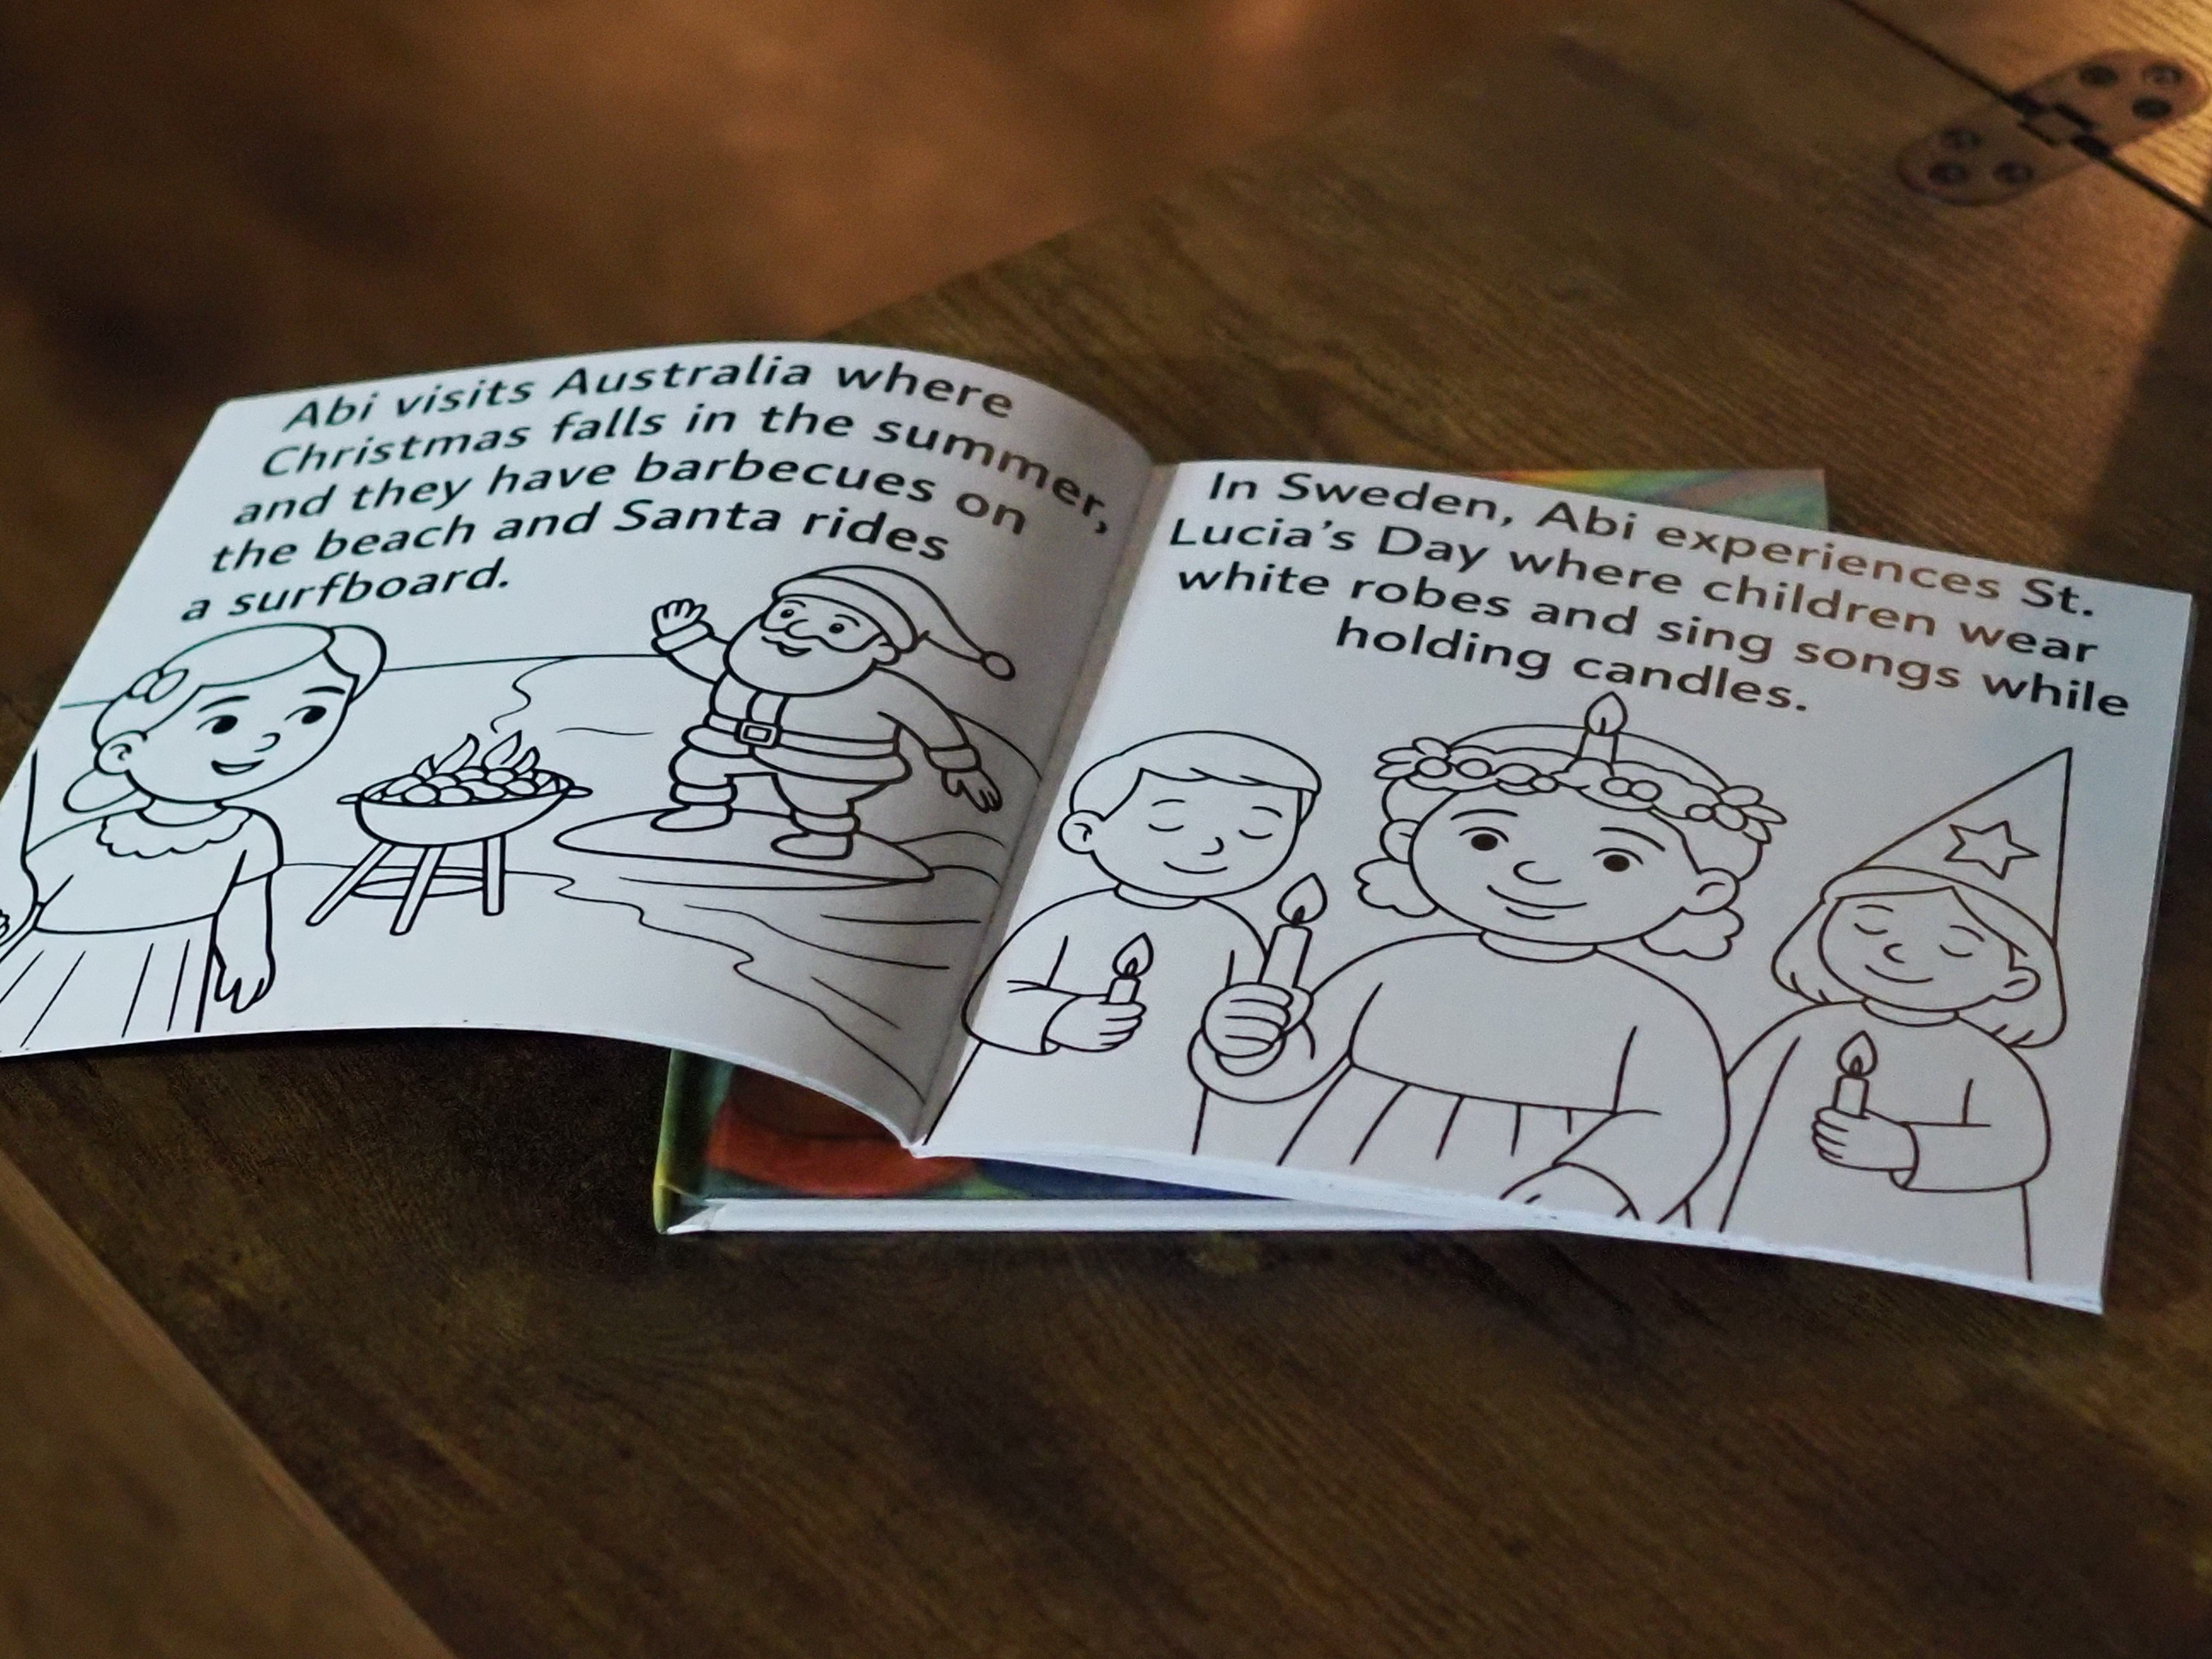 Abi visits Australia where
Christmas falls in the summer,
and they have barbecues on
the beach and Santa rides
a surfboard.
In Sweden, Abi experiences St.
Lucia's Day where children wear
white robes and sing songs while
holding candles.